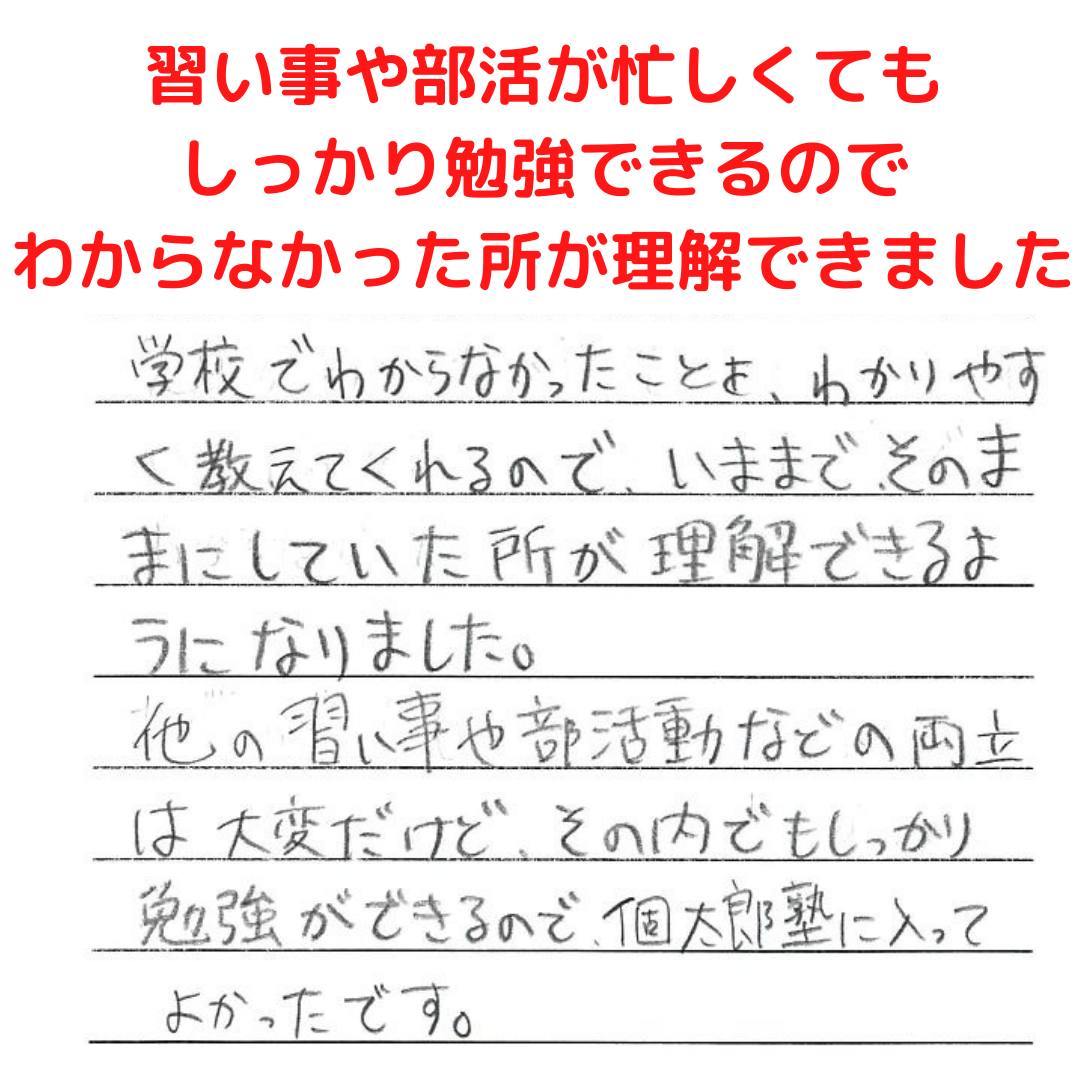 習い事や部活が忙しくても
しっかり勉強できるので
わからなかった所が理解できました
学校でわからなかったことを、わかりやす
く教えてくれるので、いままで、そのま
まにしていた所が理解できるよ
うになりました。
他の習い事や部活動などの両立
は大変だけど、その内でもしっかり
勉強ができるので、個太郎塾に入って
よかったです。